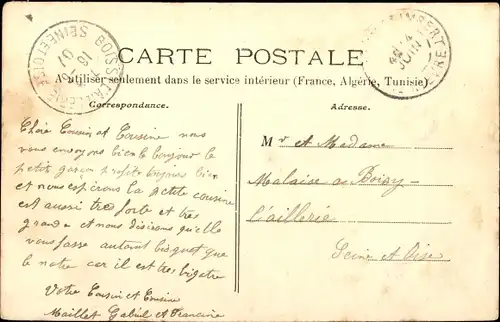 CARTE POSTALE
A utiliser seulement dans le service intérieur (France, Algérie, Tunisie)
Correspondance.
Adresse.
Chère Cousin et Cousine nous
vous envoyons bien le bonjour le
petit garçon profite toujours bien
et nous espérons la petite cousine
est aussi très forte et très
grande et nous désirons qu'elle
vous fasse autant que
le notre car il est très
Votre Cousin et Cousine
Maillet Gabriel et Francine
Mr et Madame
Malaise a Boissy
l'aillerie
Seine et Oise